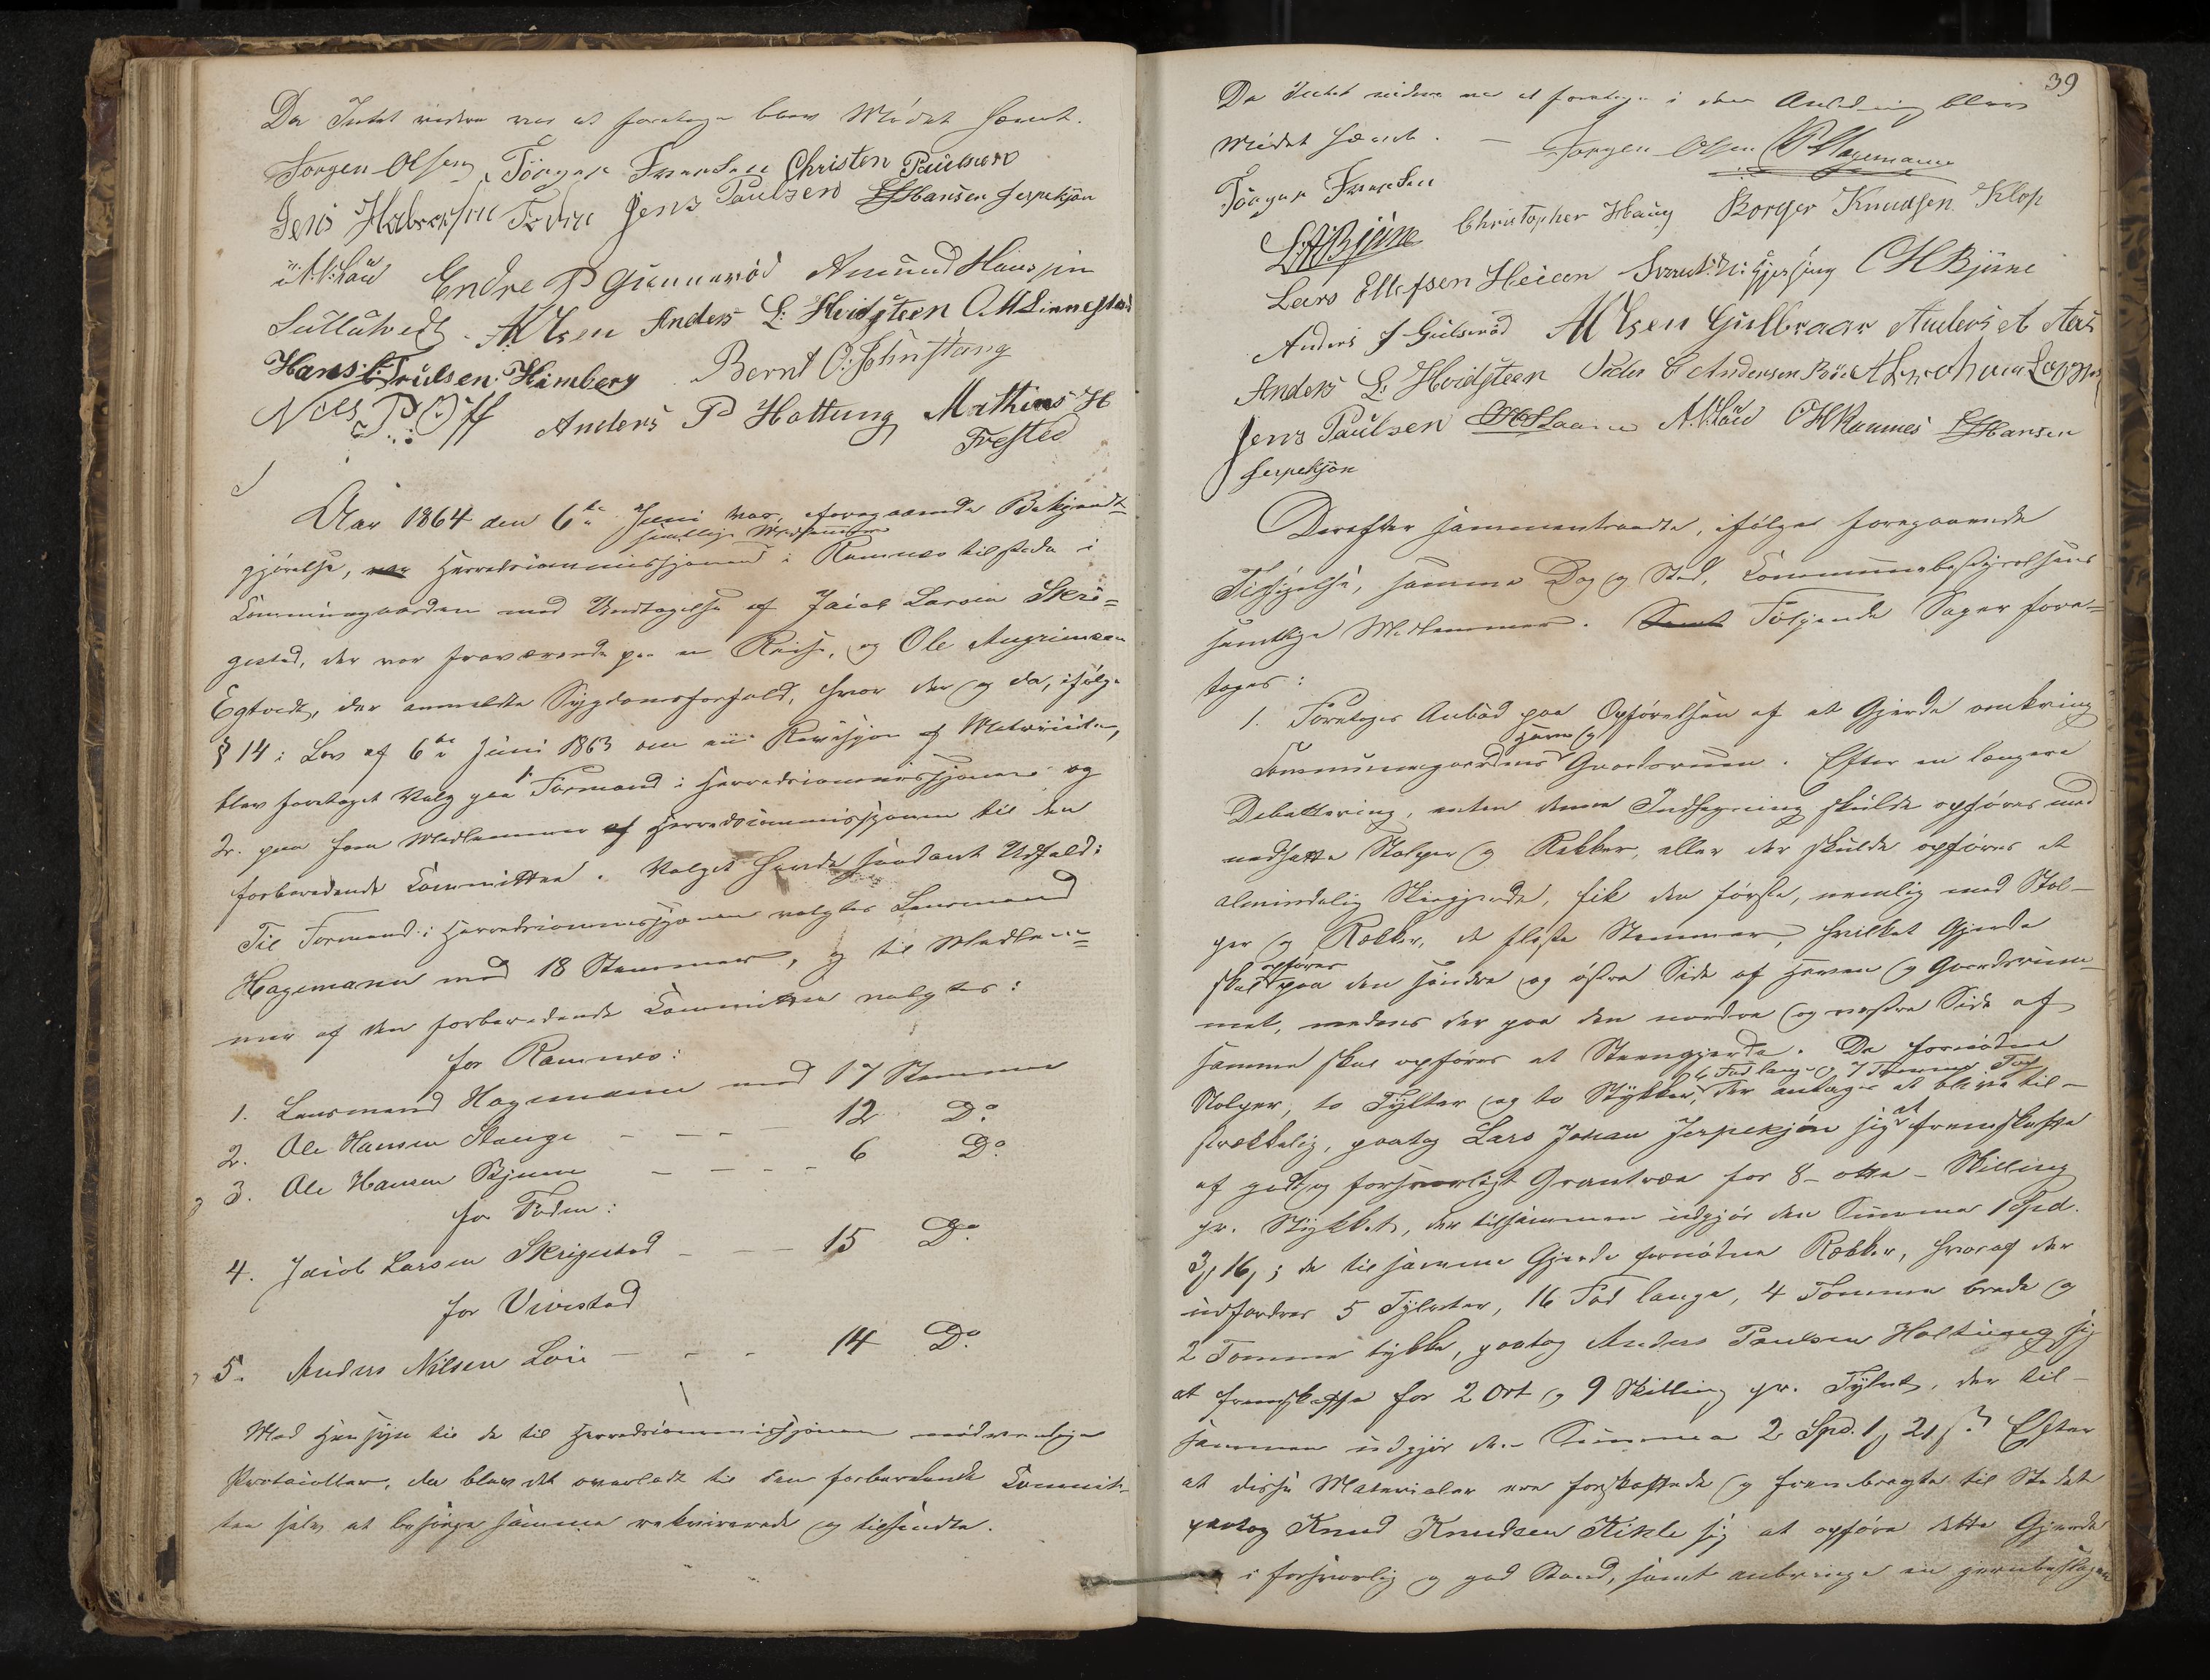 Da Intet videre var at foretage blev Mödet hævet.
Jörgen Olsen Jörgen Frandsen Christen Paulsen
Jens Halvorsen Fodne Jens Paulsen LJHansen Jerpekjön
A.N.Löw Endre P Gunneröd Amund Hanssen
Sullutvedt. AOlsen Anders L: Hvidsteen OMLinnestad
Hans C Trulsen Himberg Bernt O: Schustang
Niels P Off Anders P Holtung Mathias H
Trested
Aar 1864 den 6te Juni var, efter foregaaende Bekjendt-
samtlige Medlemmer
gjörelse, var Herredscommissjonen i Ramnes tilstede i
Communegaarden med Undtagelse af Jacob Larsen Skri-
gestad, der var fraværende paa en Reise, og Ole Angrimsen
Egtvedt, der anmeldte Sygdomsforfald, hvor der og da, ifölge
§ 14 i Lov af 6te Juni 1863 om en Revisjon af Matriculen,
blev foretaget Valg paa 1. Formand i Herredscommissjonen og
2. paa fem Medlemmer af Herredscommissjonen til den
forberedende Committee. Valget havde saadant Udfald:
Til Formand i Herredscommissjonen valgtes Lensmand
Hagemann med 18 Stemmer, og til Medlem-
mer af den forberedende Committee valgtes:
for Ramnes:
1. Lensmand Hagemann med 17 Stemmer
2. Ole Hansen Stange - - - 12 Do
3. Ole Hansen Bjune - - - - 6 Do
for Fodne:
4. Jacob Larsen Skrigestad - - - 15 Do
for Vivestad
5. Anders Nilsen Löv - - - 14 Do
Med Hensyn til de til Herredscommissjonen nödvendige
Protocoller, da blev det overladt til den forberedende Commit-
tee selv at besörge samme rekvirerede og tilsendte.
39
Da Intet videre var at foretage i den Anledning blev
Mödet hævet. - Jörgen Olsen Hagemann
Jörgen Frandsen
LABjune Christopher Haug Borger Knudsen Klop
Lars Ellefsen Heian CHBjune
Anders J Gulsröd AOlsen Gulbraar Anders A Aas
Anders L: Hvidsteen Peder C Andersen
Jens Paulsen A.N.Löw OHRamnes LJHansen
Jerpekjön
Derefter sammentraadte, ifölge foregaaende
Tilsigelse, samme Dag og Sted, Communebestyrelsens
samtlige Medlemmer. Samt Fölgende Sager fore-
toges:
1. Foretoges Anbud paa Opförelsen af et Gjerde omkring
Haven og
Communegaardens Gaardsrum. Efter en længere
Debattering, enten denne Indhegning skulde opföres med
nedsatte Stolper og Rækker, eller der skulde opföres et
almindelig Skigjerde, fik den förste, nemlig med Stol-
per og Rækker, de fleste Stemmer, hvilket Gjerde
opföres
skal paa den söndre og östre Side af Haven og Gaardsrum-
met, medens der paa den nordre og vestre Side af
samme skal opföres et Steengjerde. De fornödne
4 Fod lange og 7 Tommer Top
Stolper, to Tylter og to Stykker, der antages at blive til-
strækkelig, paatog Lars Johan Jerpekjön sig at fremskaffe
af godt og forsvarligt Grantræe for 8 - otte - Skilling
pr. Stykket, der tilsammen udgjör den Summa 1 Spd.
3 16; de til samme Gjerde fornödne Rækker, hvoraf der
udfordres 5 Tylvter, 16 Fod lange, 4 Tomme brede og
2 Tomme tykke, paatog Anders Paulsen Holtung sig
at fremskaffe for 2 Ort og 9 Skilling pr. Tylvt, der til-
sammen udgjör den Summa 2 Spd. 1 21 s. Efter
at disse Materialer ere forskaffede og frembragte til Stedet
paatog Knud Knudsen Kikle sig at opföre dette Gjerde
i forsvarlig og god Stand, samt anbringe en jernbeslagen